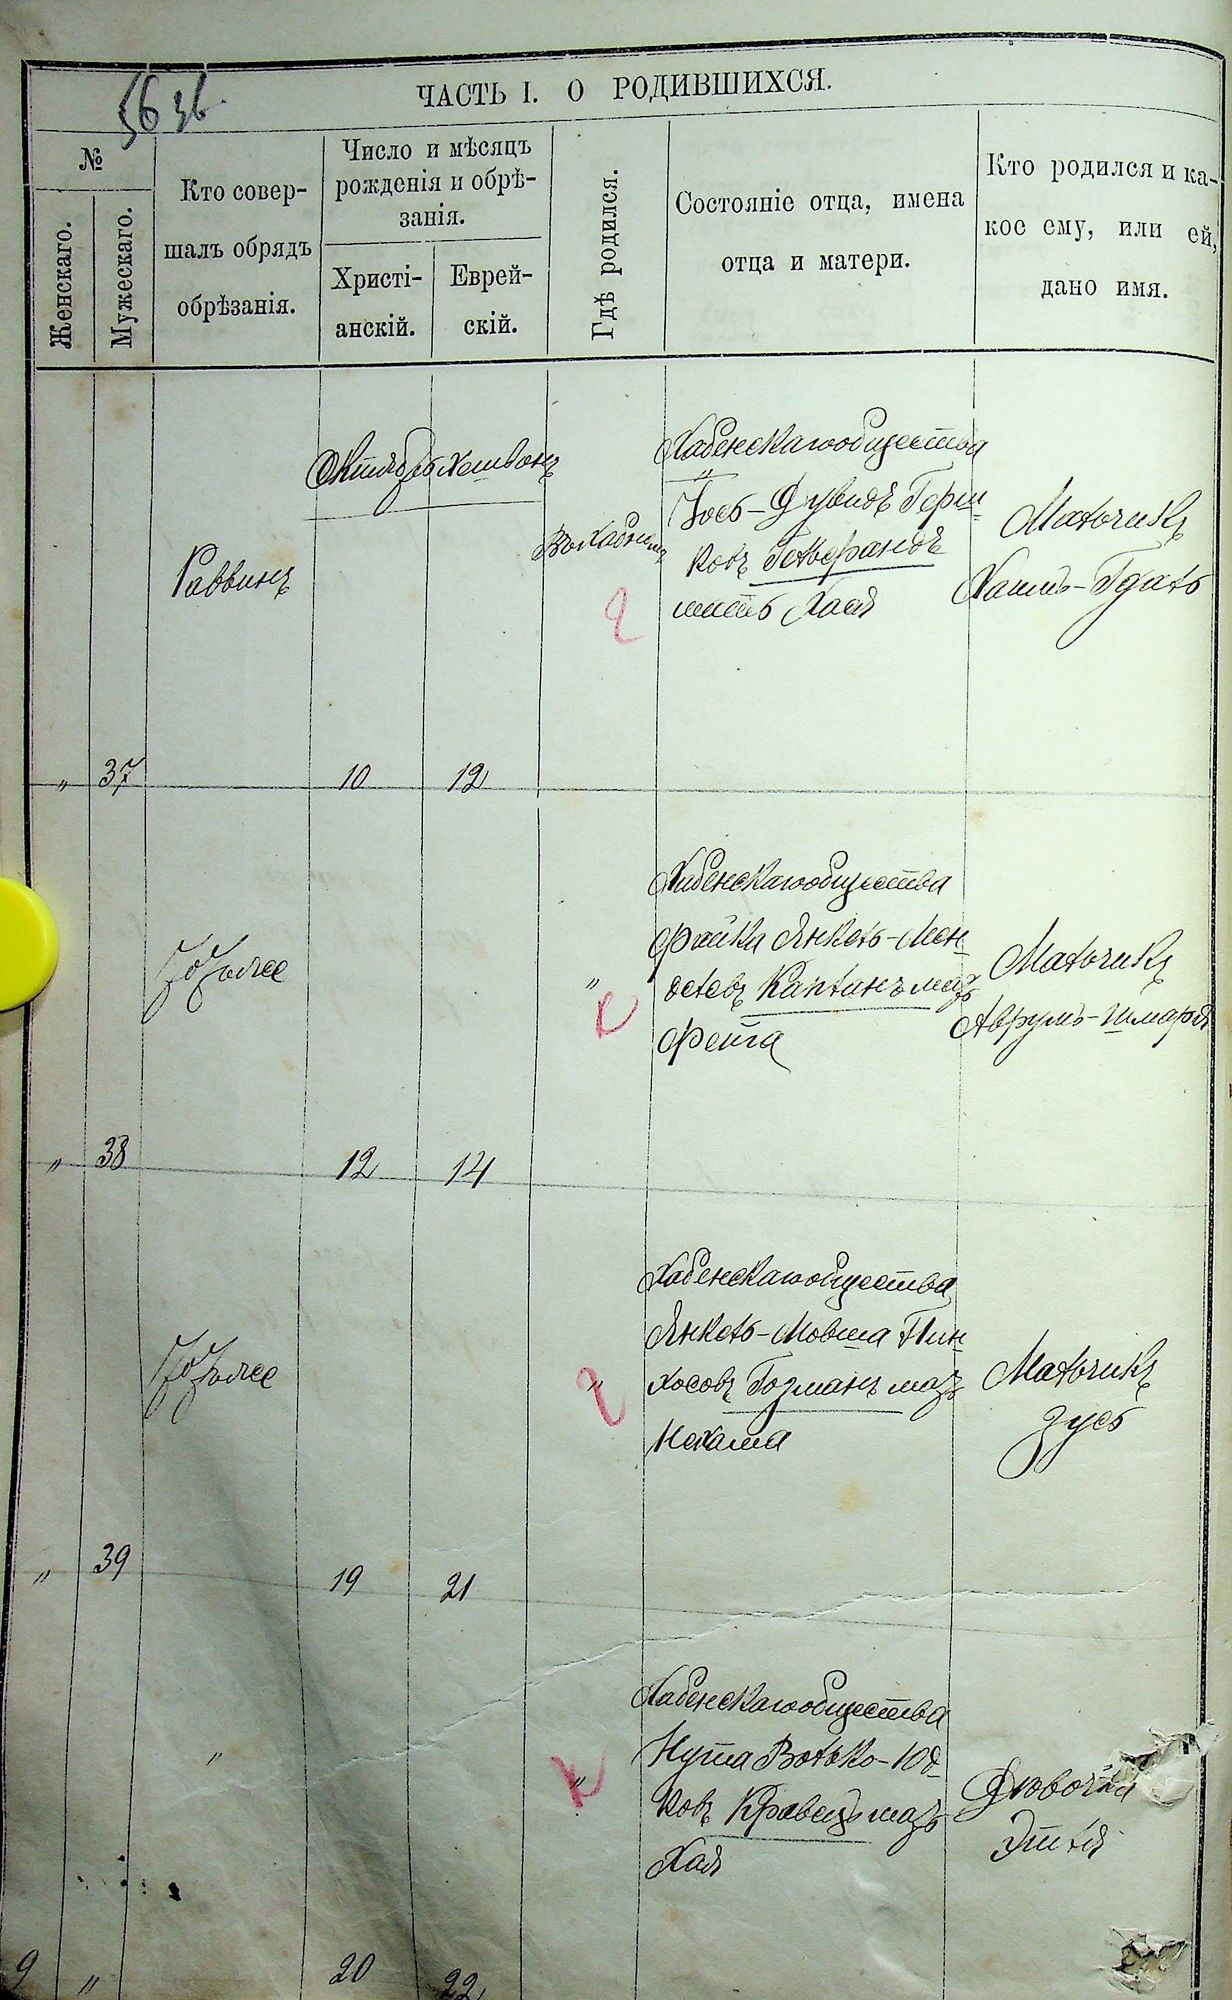 56 36
ЧАСТЬ I. О РОДИВШИХСЯ.
№
Женскаго.
Мужескаго.
Кто совер-
шалъ обрядъ
обрѣзанія.
Число и мѣсяцъ
рожденія и обрѣ-
занія.
Христі-
анскій.
Еврей-
скій.
Гдѣ родился.
Состояніе отца, имена
отца и матери.
Кто родился и ка-
кое ему, или ей,
дано имя.
„ 37
Раввинъ
Октябрь Хешванъ
10 12
Въ Хабномъ
Хабенскаго общества
Іось-Дувидъ Герш-
ковъ
мать Хая
Мальчикъ
Хаимъ-Гдаль
„ 38
Тотъ же
12 14
„
Хабенскаго общества
Фойка Янкель-Мен-
делевъ Капланъ мать
Фейга
Мальчикъ
Аврумъ-Шмарія
„ 39
Тотъ же
19 21
„
Хабенскаго общества
Янкель-Мовша Пин-
хосовъ Гозманъ мать
Нехама
Мальчикъ
Зусь
9 „
„
20 22
„
Хабенскаго общества
Нута Волько-Юд-
ковъ Кравецъ мать
Хая
Дѣвочка
Этля